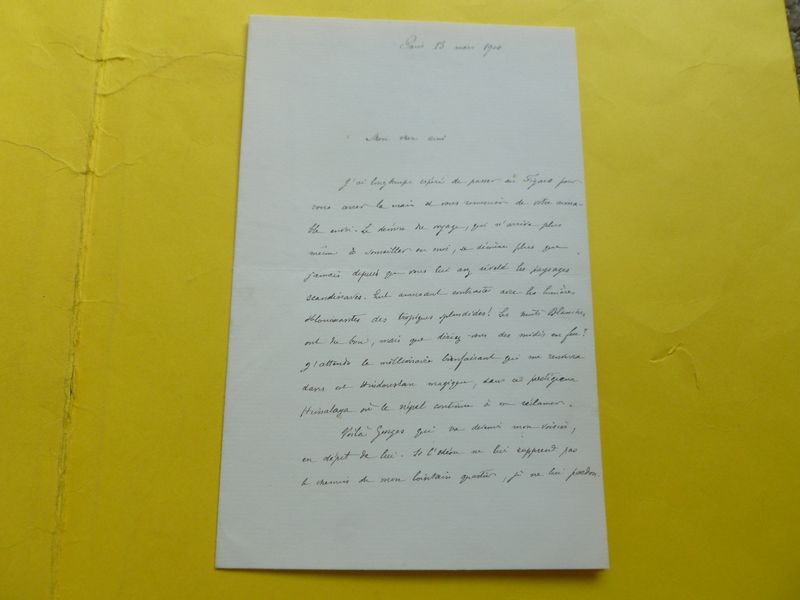 Paris 13 mars 1900
Mon cher ami
J'ai longtemps espéré de passer au Figaro pour
vous serrer la main et vous remercier de votre aima-
ble envoi. Le démon du voyage, qui n'arrive plus
même à sommeiller en moi, se démène plus que
jamais depuis que vous lui avez révélé les paysages
scandinaves. Quel amusant contraste avec les lumières
éblouissantes des tropiques splendides! Les nuits blanches
ont du bon, mais que diriez-vous des midis en feu?
J'attends le millionnaire bienfaisant qui me renverra
dans cet Hindoustan magique, dans ce prestigieux
Himalaya où le Népal continue à me réclamer.
Voilà Georges qui va devenir mon voisin,
en dépit de lui. Si l'Odéon ne lui apprend pas
le chemin de mon lointain quartier, je ne lui pardon